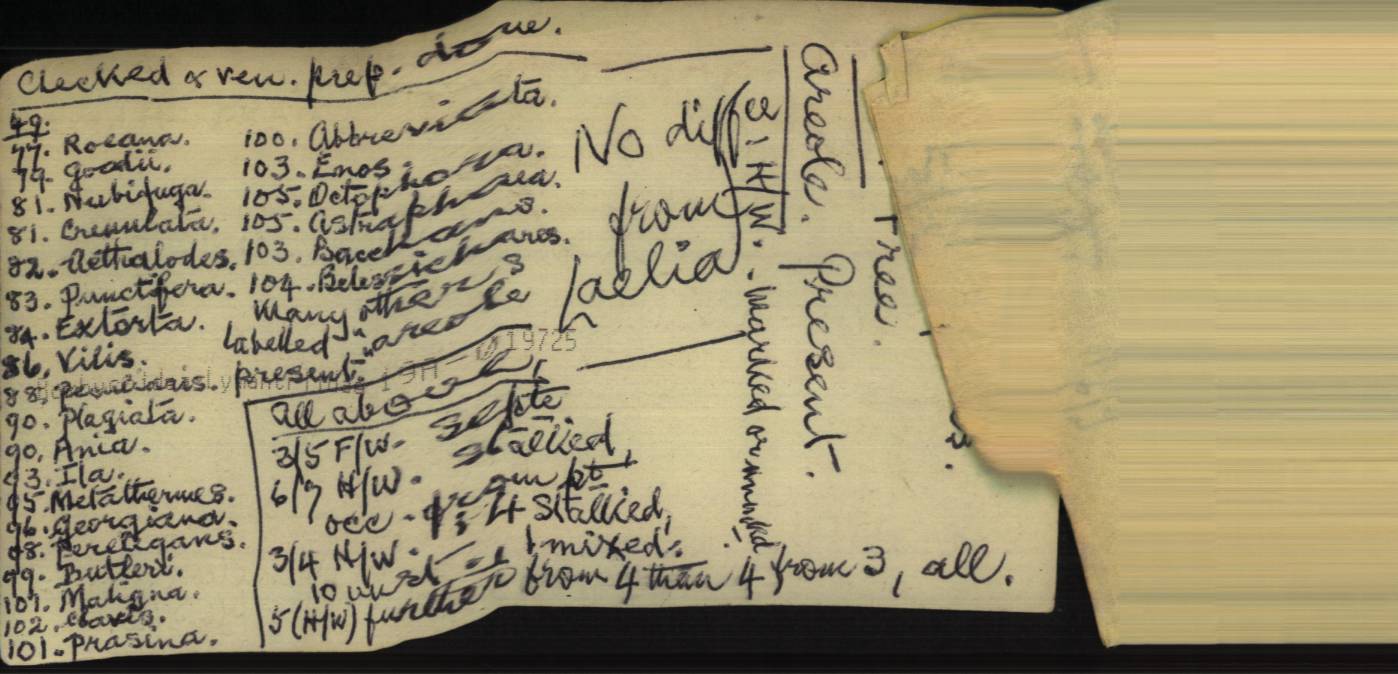 Checked & ven. prep. done.
49.
77. Roeana.
79. Goodii.
81. Nubifuga.
81. Crenulata.
82. Aethalodes.
83. Punctifera.
84. Extorta.
86. Vilis.
88.
90. Plagiata.
90. Ania.
93. Ila.
95. Metathermes.
96. Georgiana.
98. Perelegans.
99. Butleri.
101. Maligna.
102.
101. Prasina.
100. Abbreviata.
103. Enos
105. Octophora.
105. Astraphaea.
103. Bacchans.
104.
Many others
labelled "areole
present"
19725
All above,
3/5 F/W. septe
6/7 H/W. stalked,
occ. from pt
3/4 H/W. 4 stalked,
1 mixed.
5 (H/W) further from 4 than 4 from 3, all.
No diffce
from
Laelia
! H/W. marked or unmarked
Areole. Present.
Free.